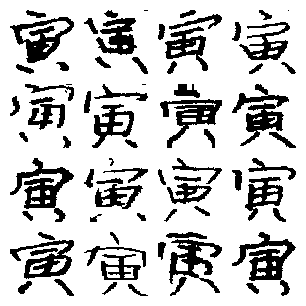 寅寅寅寅
寅寅寅寅
寅寅寅寅
寅寅寅寅